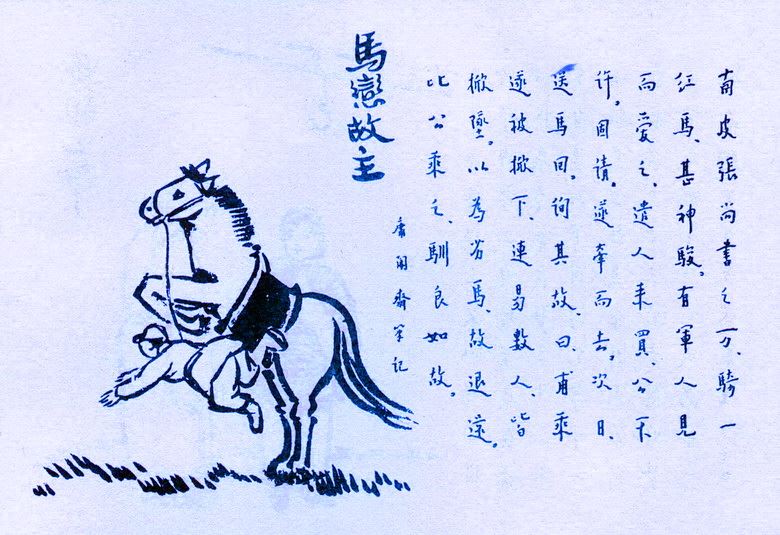 馬戀故主
南皮張尚書之万、騎一
红馬、甚神駿。有軍人見
而愛之、遣人来買、公不
许。固请。遂牽而去。次日、
送馬回。询其故、曰、甫乘
遂被掀下、連易數人、皆
掀墜。以為劣馬、故退還。
比公乘之、馴良如故。
庸閑齋笔记